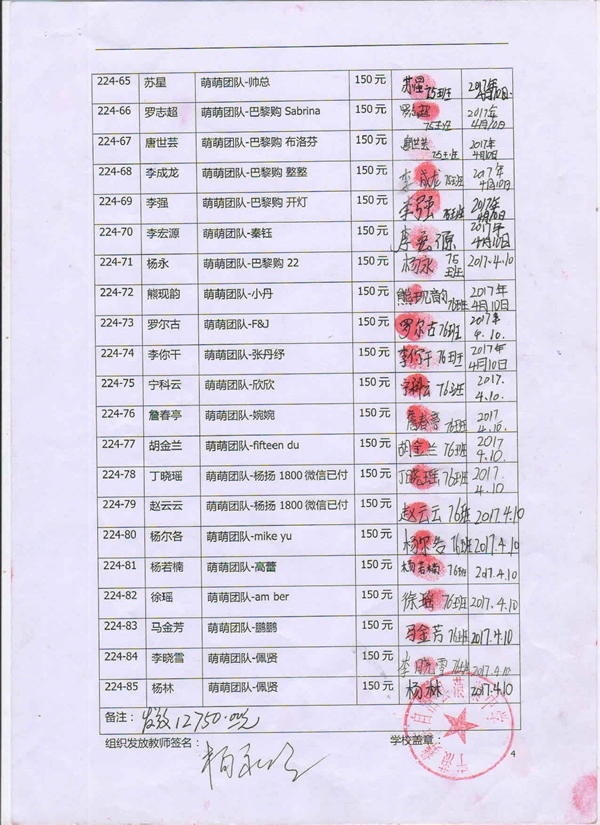 224-65 苏星 萌萌团队-帅总 150 元 苏星 75班 2017年4月10日
224-66 罗志超 萌萌团队-巴黎购 Sabrina 150 元 罗志超 75班 2017年4月10日
224-67 唐世芸 萌萌团队-巴黎购 布洛芬 150 元 唐世芸 75班 2017年4月10日
224-68 李成龙 萌萌团队-巴黎购 整整 150 元 李成龙 76班 2017年4月10日
224-69 李强 萌萌团队-巴黎购 开灯 150 元 李强 75班 2017年4月10日
224-70 李宏源 萌萌团队-秦钰 150 元 李宏源 2017年4月10日
224-71 杨永 萌萌团队-巴黎购 22 150 元 杨永 75班 2017.4.10
224-72 熊现韵 萌萌团队-小丹 150 元 熊现韵 76班 2017年4月10日
224-73 罗尔古 萌萌团队-F&J 150 元 罗尔古 76班 2017年4.10.
224-74 李你干 萌萌团队-张丹纾 150 元 李你干 76班 2017年4月10日
224-75 宁科云 萌萌团队-欣欣 150 元 宁科云 76班 2017.4.10.
224-76 詹春亭 萌萌团队-婉婉 150 元 詹春亭 76班 2017.4.10.
224-77 胡金兰 萌萌团队-fifteen du 150 元 胡金兰 76班 2017 4.10.
224-78 丁晓瑶 萌萌团队-杨扬 1800 微信已付 150 元 丁晓瑶 76班 2017.4.10
224-79 赵云云 萌萌团队-杨扬 1800 微信已付 150 元 赵云云 76班 2017.4.10
224-80 杨尔各 萌萌团队-mike yu 150 元 杨尔各 76班 2017.4.10
224-81 杨若楠 萌萌团队-高蕾 150 元 杨若楠 76班 2017.4.10
224-82 徐瑶 萌萌团队-am ber 150 元 徐瑶 76班 2017.4.10
224-83 马金芳 萌萌团队-鹏鹏 150 元 马金芳 76班 2017.4.10
224-84 李晓雪 萌萌团队-佩贤 150 元 李晓雪 76班 2017.4.10
224-85 杨林 萌萌团队-佩贤 150 元 杨林 2017.4.10
备注： 发放12750.00元
组织发放教师签名： 学校盖章：
4